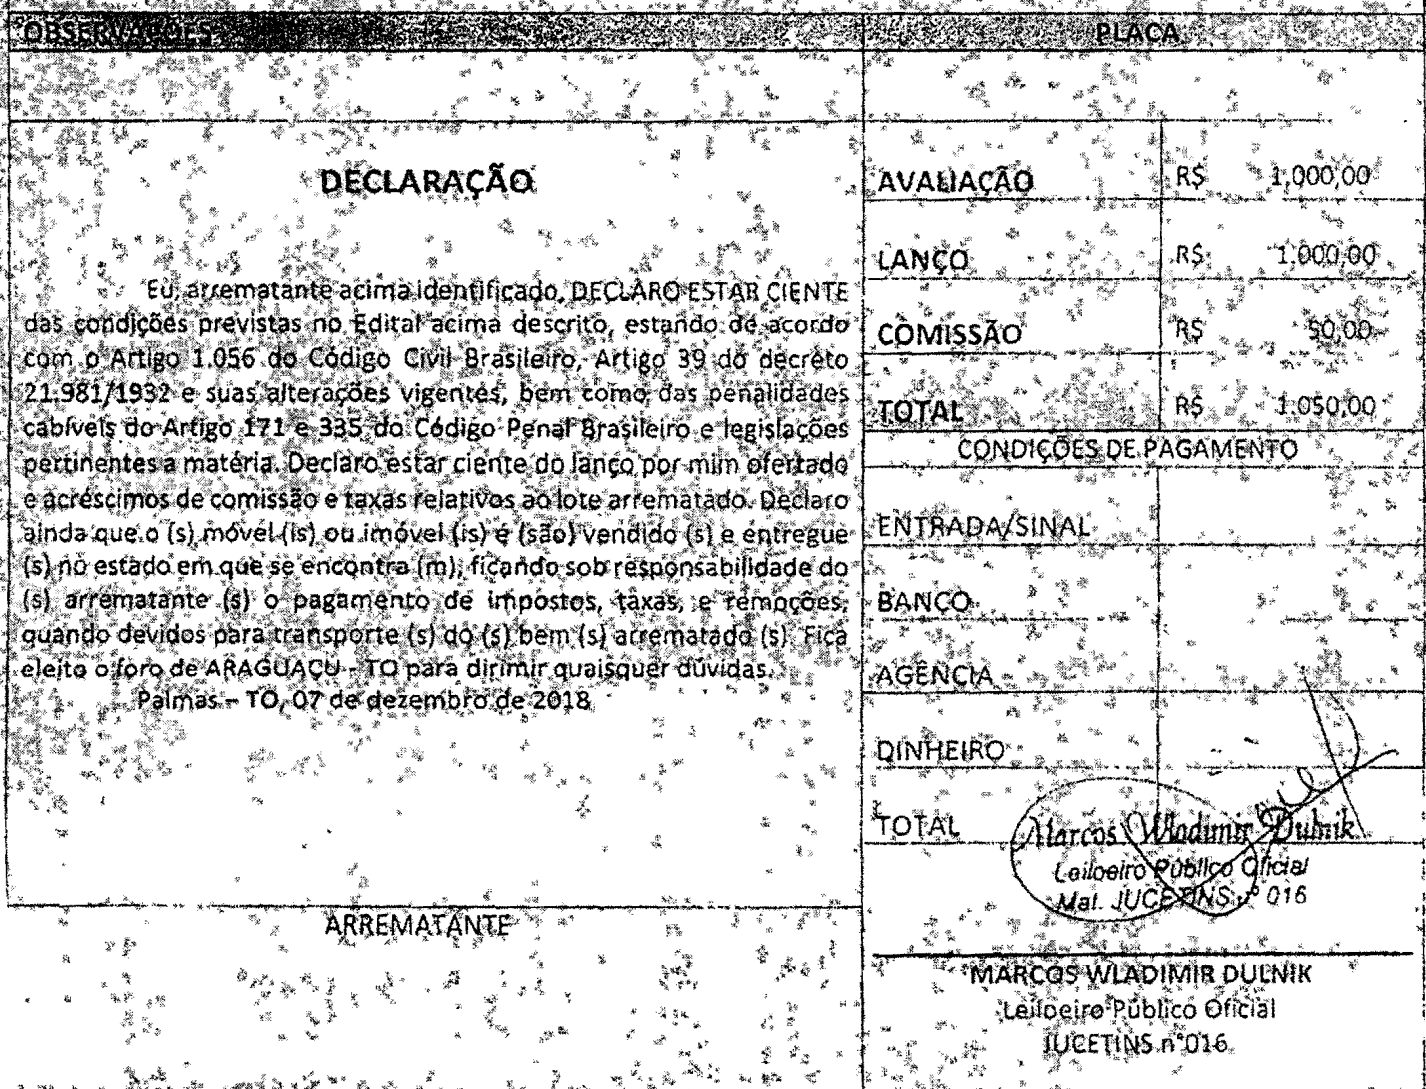 OBSERVAÇÕES
PLACA
DECLARAÇÃO
Eu, arrematante acima identificado, DECLARO ESTAR CIENTE
das condições previstas no Edital acima descrito, estando de acordo
com o Artigo 1.056 do Código Civil Brasileiro, Artigo 39 do decreto
21.981/1932 e suas alterações vigentes, bem como das penalidades
cabíveis do Artigo 171 e 335 do Código Penal Brasileiro e legislações
pertinentes a matéria. Declaro estar ciente do lanço por mim ofertado
e acréscimos de comissão e taxas relativos ao lote arrematado. Declaro
ainda que o (s) móvel (is) ou imóvel (is) é (são) vendido (s) e entregue
(s) no estado em que se encontra (m), ficando sob responsabilidade do
(s) arrematante (s) o pagamento de impostos, taxas, e remoções,
quando devidos para transporte (s) do (s) bem (s) arrematado (s). Fica
eleito o foro de ARAGUAÇU - TO para dirimir quaisquer dúvidas.
Palmas – TO, 07 de dezembro de 2018
ARREMATANTE
AVALIAÇÃO R$ 1.000,00
LANÇO R$ 1.000,00
COMISSÃO R$ 50,00
TOTAL R$ 1.050,00
CONDIÇÕES DE PAGAMENTO
ENTRADA/SINAL
BANCO
AGÊNCIA
DINHEIRO
TOTAL
Marcos Wladimir Dulnik
Leiloeiro Público Oficial
Mat. JUCETINS nº 016
MARCOS WLADIMIR DULNIK
Leiloeiro Público Oficial
JUCETINS n°016